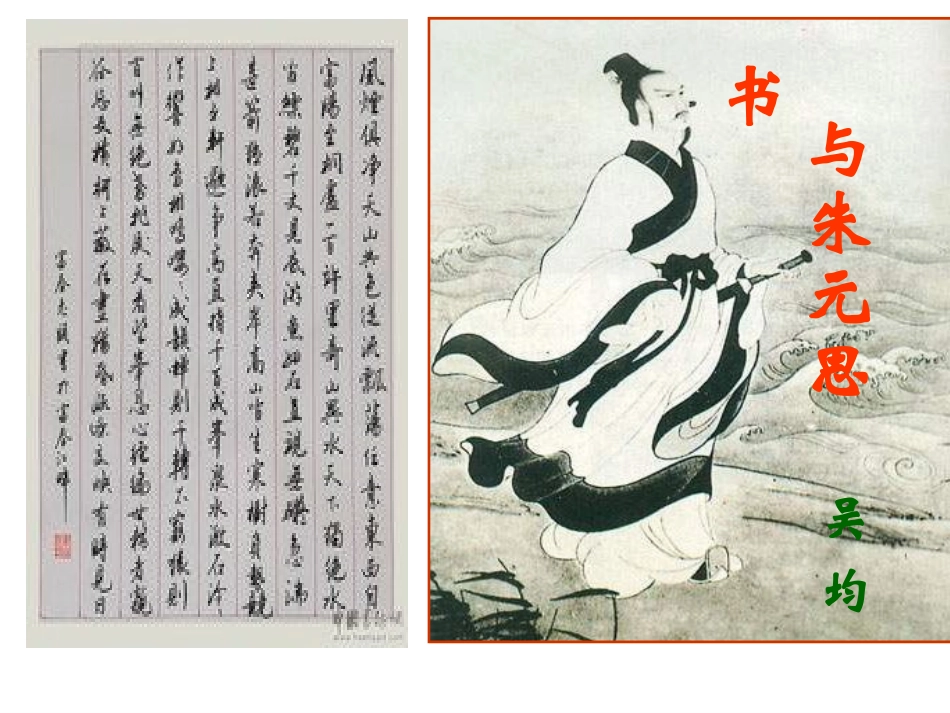 風煙俱净天山共色從流飄蕩任意東西自
富陽至桐廬一百許里奇山異水天下獨絶水
皆縹碧千丈見底游魚細石直視無礙急湍
甚箭猛浪若奔夹岸高山皆生寒樹負勢競
上相互軒邈争高直指千百成峯泉水激石泠
作響好鳥相鳴嚶成韻蟬則千轉不窮猿則
百叫無絶鳶飛戾天者望峯息心經綸世務者窺
谷忘反横柯上蔽在晝猶昏疏條交映有時見日
富春於富春江畔
书
与朱元思
吴均